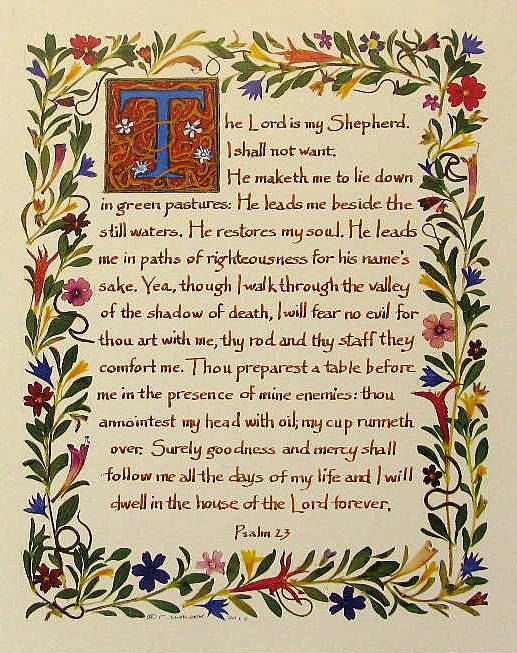 The Lord is my Shepherd.
I shall not want.
He maketh me to lie down
in green pastures: He leads me beside the
still waters. He restores my soul. He leads
me in paths of righteousness for his name's
sake. Yea, though I walk through the valley
of the shadow of death, I will fear no evil for
thou art with me, thy rod and thy staff they
comfort me. Thou preparest a table before
me in the presence of mine enemies: thou
annointest my head with oil; my cup runneth
over. Surely goodness and mercy shall
follow me all the days of my life and I will
dwell in the house of the Lord forever.
Psalm 23